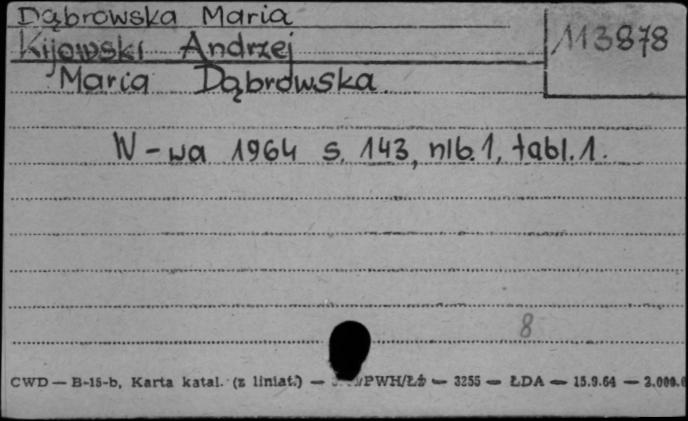 Dąbrowska Maria
Kijowski Andrzej
113878
Maria Dąbrowska.
W-wa 1964 s. 143, nlb. 1, tabl. 1.
8
CWD — B-15-b, Karta katal. (z liniat.) — PWH/Łż — 3255 — ŁDA — 15.9.64 —